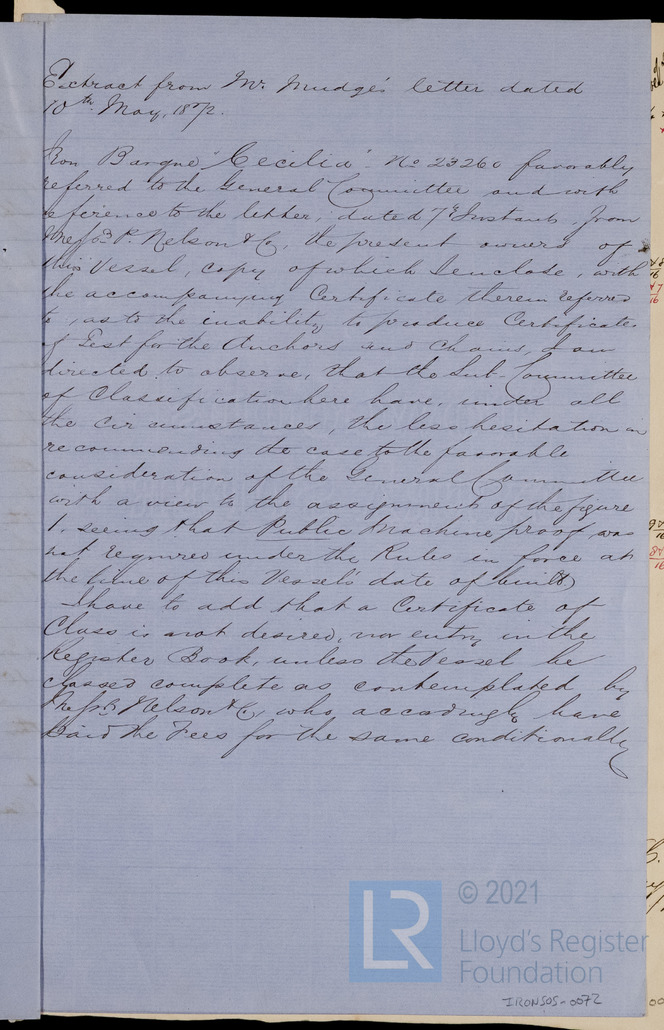 Extract from Mr. Mudge's letter dated
10th May, 1872.
Iron Barque "Cecilia". No 23260 favorably
referred to the General Committee and with
reference to the letter, dated 7th Instant, from
Messrs P. Nelson & Co, the present owners of
this Vessel, copy of which I enclose, with
the accompanying Certificate therein referred
to, as to the inability to produce Certificates
of Test for the Anchors and Chains, I am
directed to observe, that the Sub-Committee
of Classification here have, under all
the circumstances, the less hesitation in
recommending the case to the favorable
consideration of the General Committee
with a view to the assignment of the figure
1. seeing that Public Machine proof was
not required under the Rules in force at
the time of this Vessel's date of build
I have to add that a Certificate of
Class is not desired, nor entry in the
Register Book, unless the Vessel be
classed complete as contemplated by
Messrs Nelson & Co, who accordingly have
paid the Fees for the same conditionally
LR
© 2021
Lloyd's Register
Foundation
IRONSOS-0072